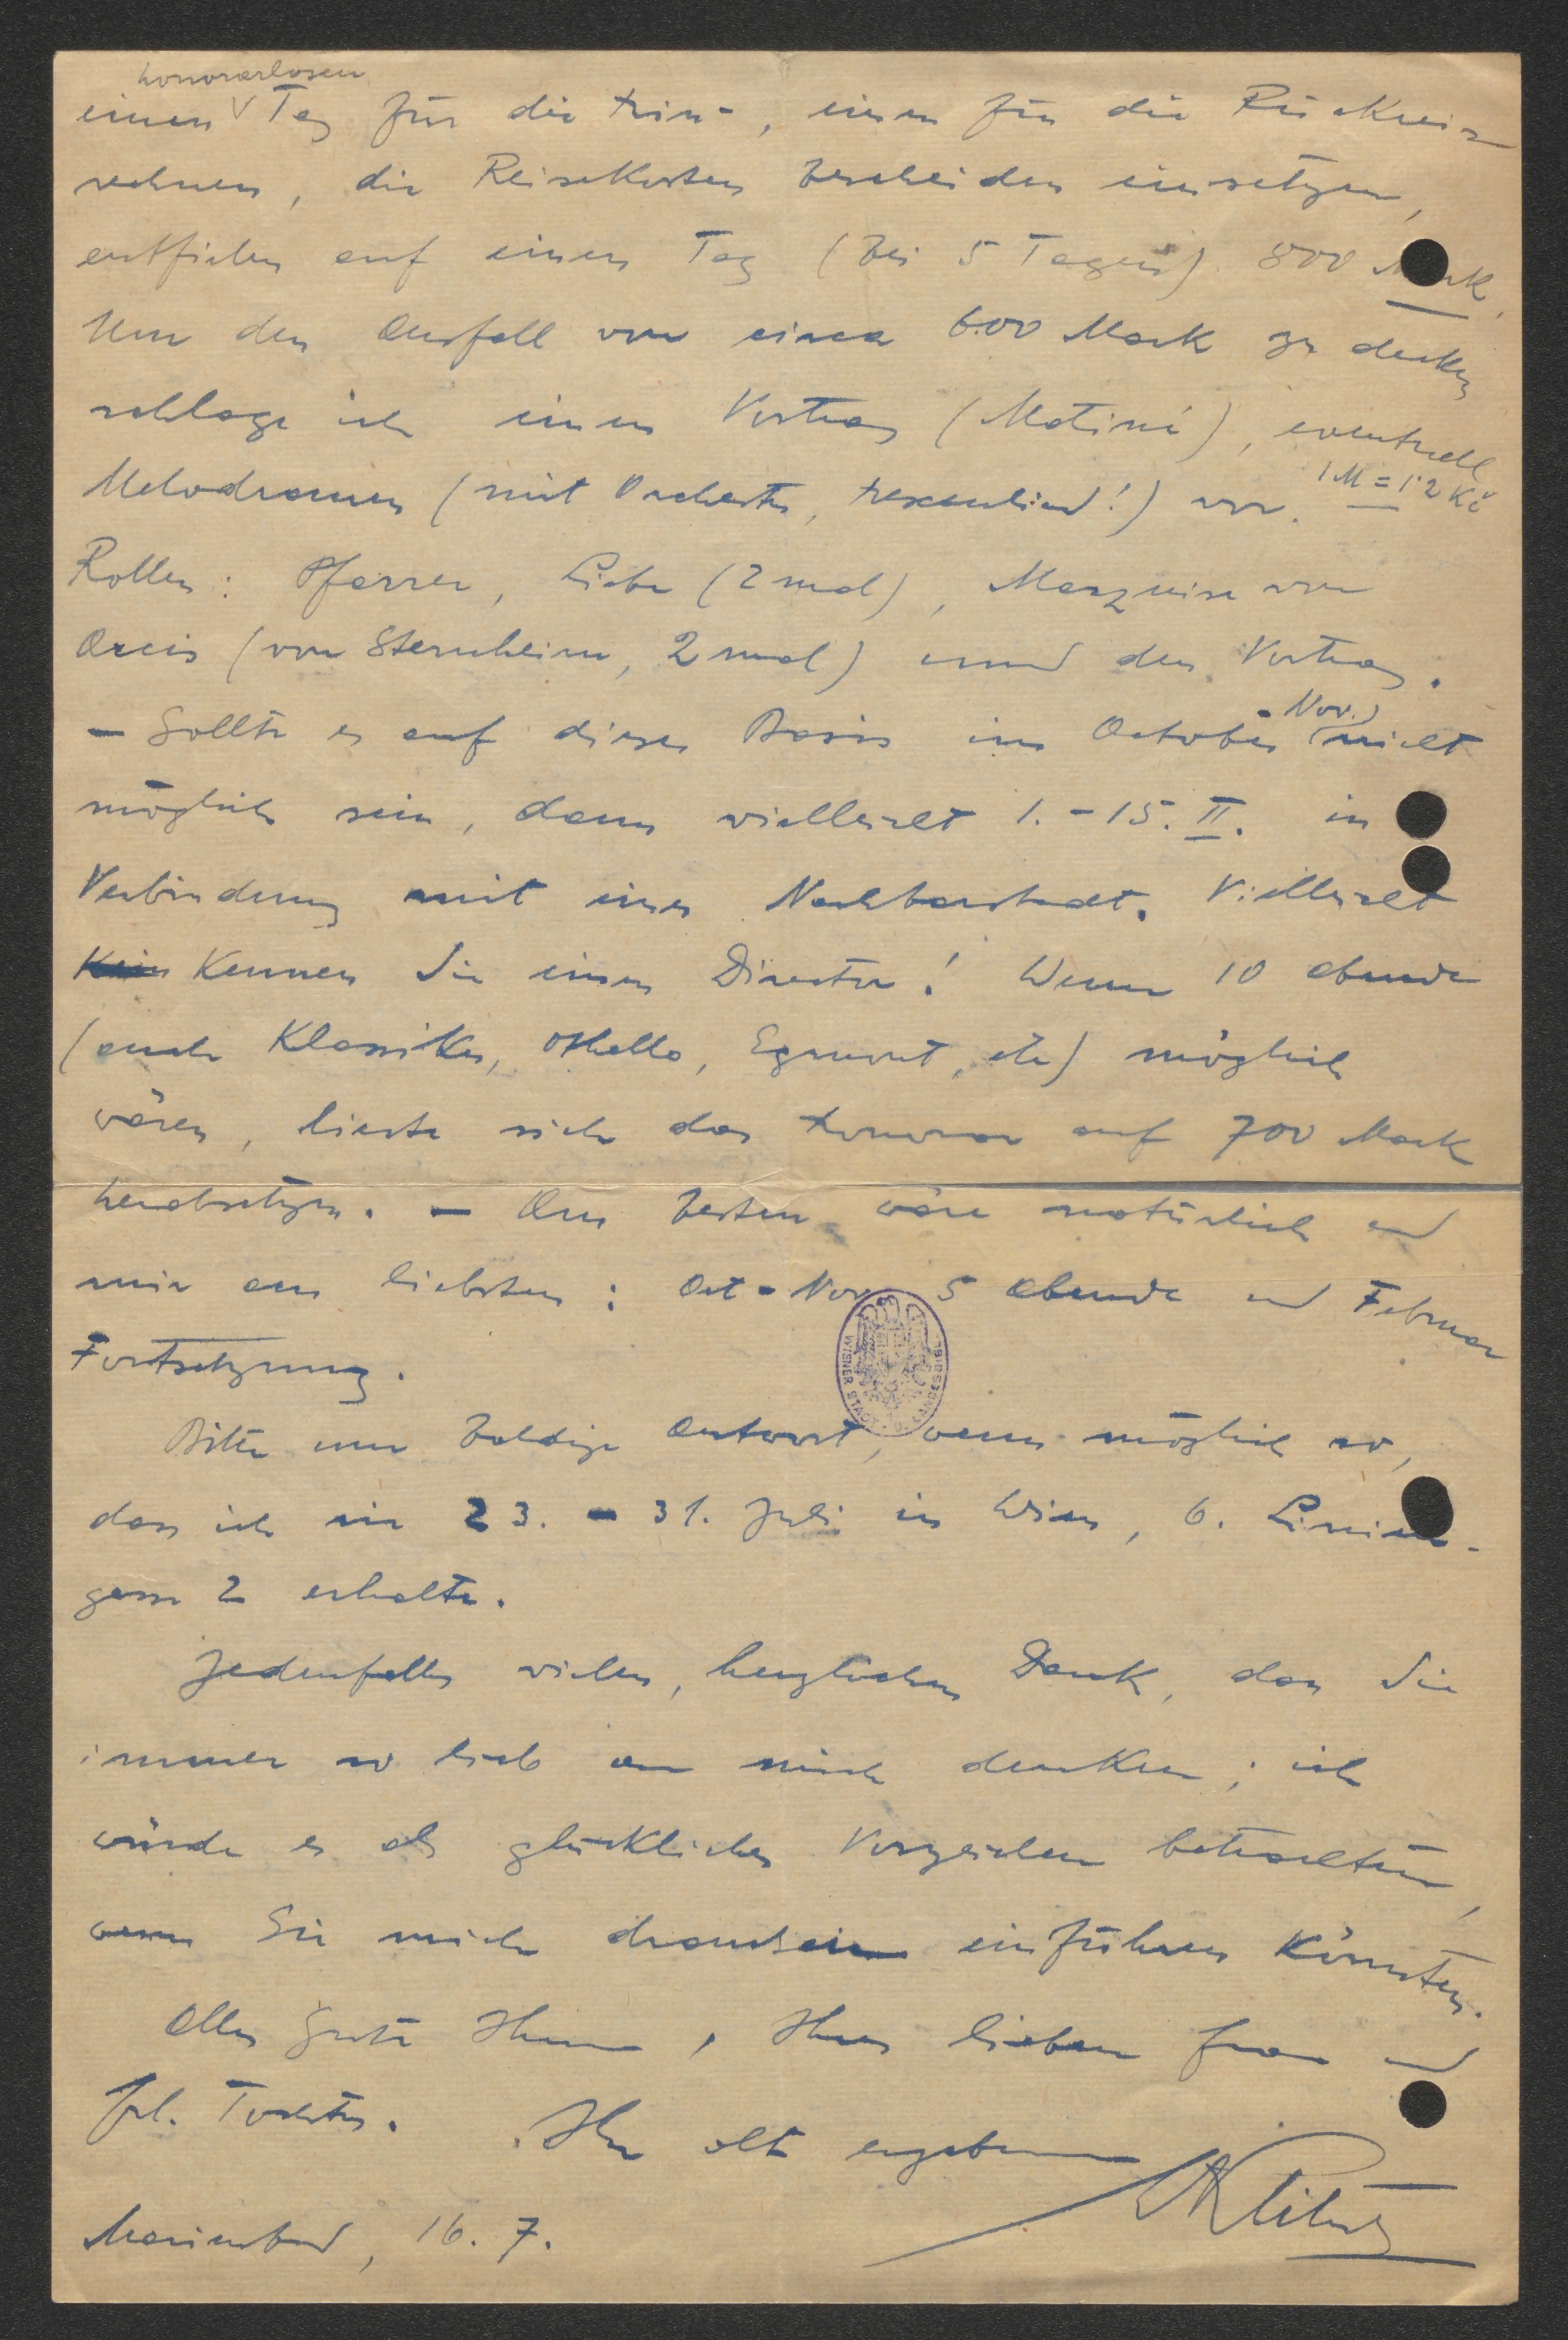 honorarlosen
einen Tag für die Hin-, einen für die Rückreise
rechnen, die Reisekosten bescheiden einsetzen,
entfielen auf einen Tag (bei 5 Tagen) 800 Mark.
Um den Ausfall von circa 600 Mark zu decken
schlage ich einen Vortrag (Matiné), eventuell
Melodramen (mit Orchester, hexenlied!) vor. 1 M = 1'2 Kč
Rollen: Pfarrer, Liebe (2 mal), Marquise von
Arcis (von Sternheim, 2 mal) und den Vortrag.
– Sollte es auf dieser Basis im October (Nov.) nicht
möglich sein, dann vielleicht 1. - 15. II. in
Verbindung mit einer Nachbarstadt. Vielleicht
kennen Sie einen Director! Wenn 10 Abende
(auch Klassiker, Othello, Egmont, etc) möglich
wären, liesse sich das Honorar auf 700 Mark
herabsetzen. – Am besten wäre natürlich und
mir am liebsten: Oct - Nov. 5 Abende und Februar
Fortsetzung.
WIENER STADT- U. LANDESBIBL.
Bitte um baldige Antwort, wenn möglich so,
dass ich sie 23. - 31. Juli in Wien, 6. Linien-
gasse 2 erhalte.
Jedenfalls vielen, herzlichen Dank, dass Sie
immer so lieb an mich denken; ich
würde es als glückliches Vorzeichen betrachten,
wenn Sie mich draussen einführen könnten.
Alles Gute Ihnen, Ihrer lieben Frau und
Frl. Tochter. Ihr alt ergebener
Marienbad, 16. 7.